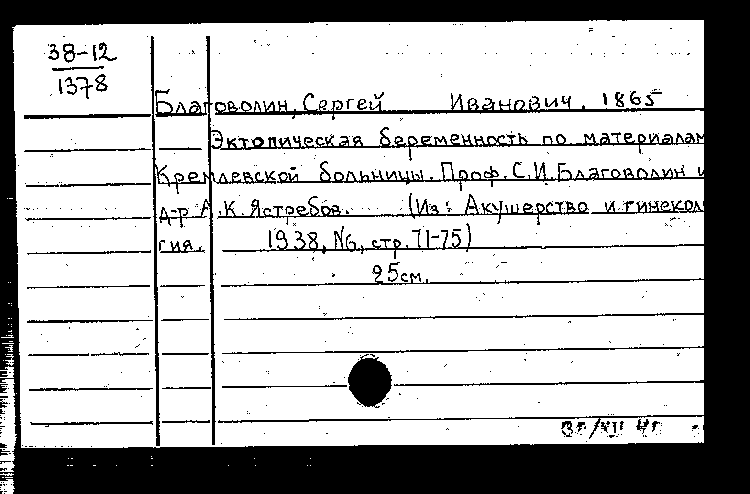 38-12
1378
Благоволин, Сергей Иванович. 1865
Эктопическая беременность по материалам
Кремлевской больницы. Проф. С.И. Благоволин и
д-р А.К. Ястребов. (Из: Акушерство и гинекол
гия. 1938, N6, стр. 71-75)
25см.